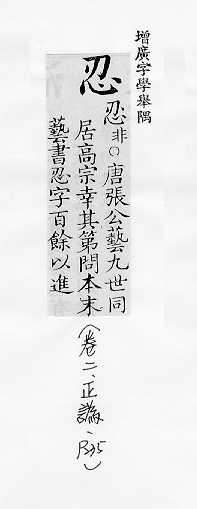 增廣字學舉隅
忍
忍非○唐張公藝九世同
居高宗幸其第問本末
藝書忍字百餘以進
(卷二、正譌、P35)